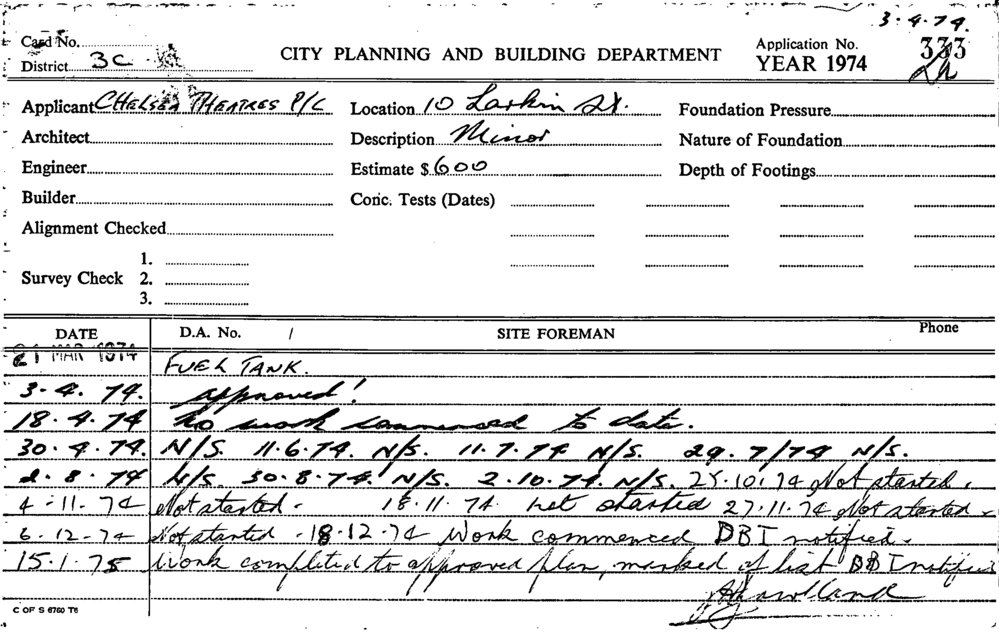 3.4.74.
Card No.
District 3C
CITY PLANNING AND BUILDING DEPARTMENT
Application No. 333
YEAR 1974
Applicant CHELSEA THEATRES P/L Location 10 Larkin St. Foundation Pressure
Architect Description Minor Nature of Foundation
Engineer Estimate $ 600 Depth of Footings
Builder Conc. Tests (Dates)
Alignment Checked
1.
Survey Check 2.
3.
DATE D.A. No. / SITE FOREMAN Phone
21 MAR 1974 FUEL TANK.
3.4.74. approved!
18.4.74 No work commenced to date.
30.4.74. N/S. 11.6.74. N/S. 11.7.74 N/S. 29.7/74 N/S.
2.8.74 N/S. 30.8.74. N/S. 2.10.74. N/S. 25.10.74 Not started.
4-11-74 Not started. 18.11.74. Not started 27.11.74 Not started.
6-12-74 Not started. 18.12.74 Work commenced DBI notified.
15.1.75 Work completed to approved plan, marked of list DBI notified
C OF S 6760 T6